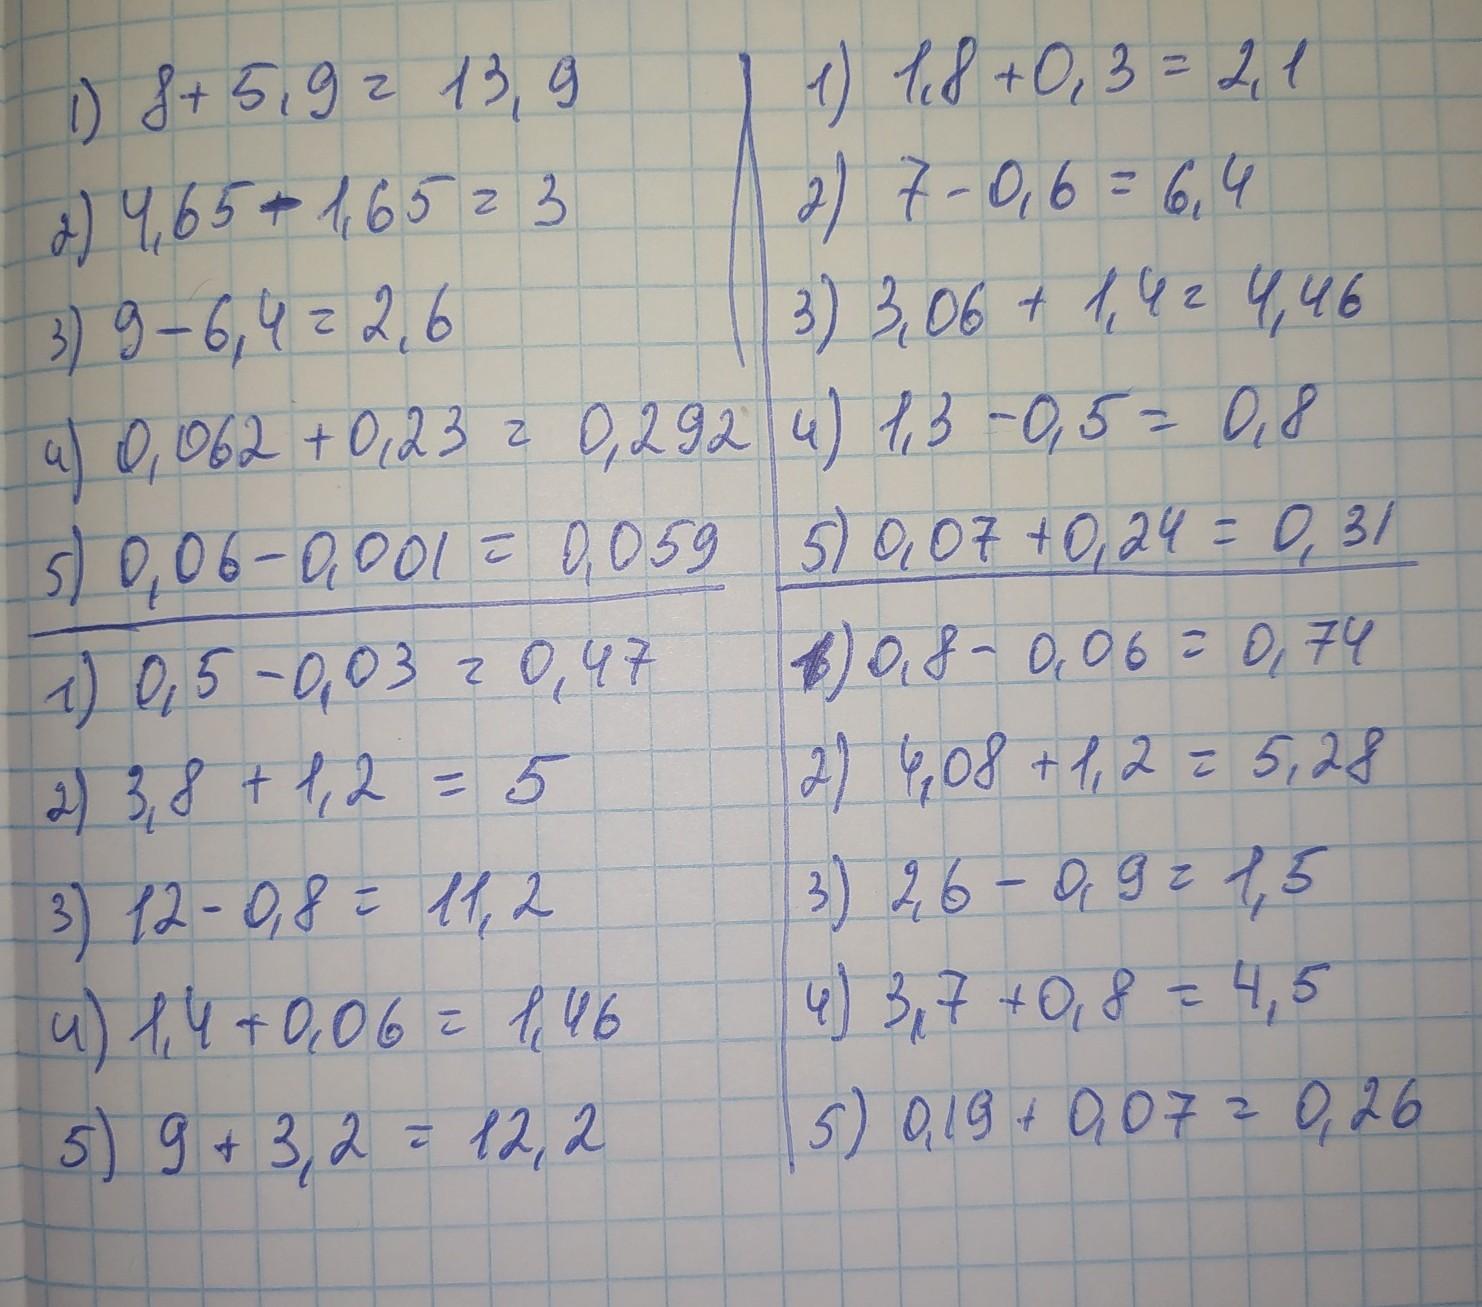 1) 8+5,9=13,9
2) 4,65-1,65=3
3) 9-6,4=2,6
4) 0,062+0,23=0,292
5) 0,06-0,001=0,059
1) 1,8+0,3=2,1
2) 7-0,6=6,4
3) 3,06+1,4=4,46
4) 1,3-0,5=0,8
5) 0,07+0,24=0,31
1) 0,5-0,03=0,47
2) 3,8+1,2=5
3) 12-0,8=11,2
4) 1,4+0,06=1,46
5) 9+3,2=12,2
1) 0,8-0,06=0,74
2) 4,08+1,2=5,28
3) 2,6-0,9=1,5
4) 3,7+0,8=4,5
5) 0,19+0,07=0,26